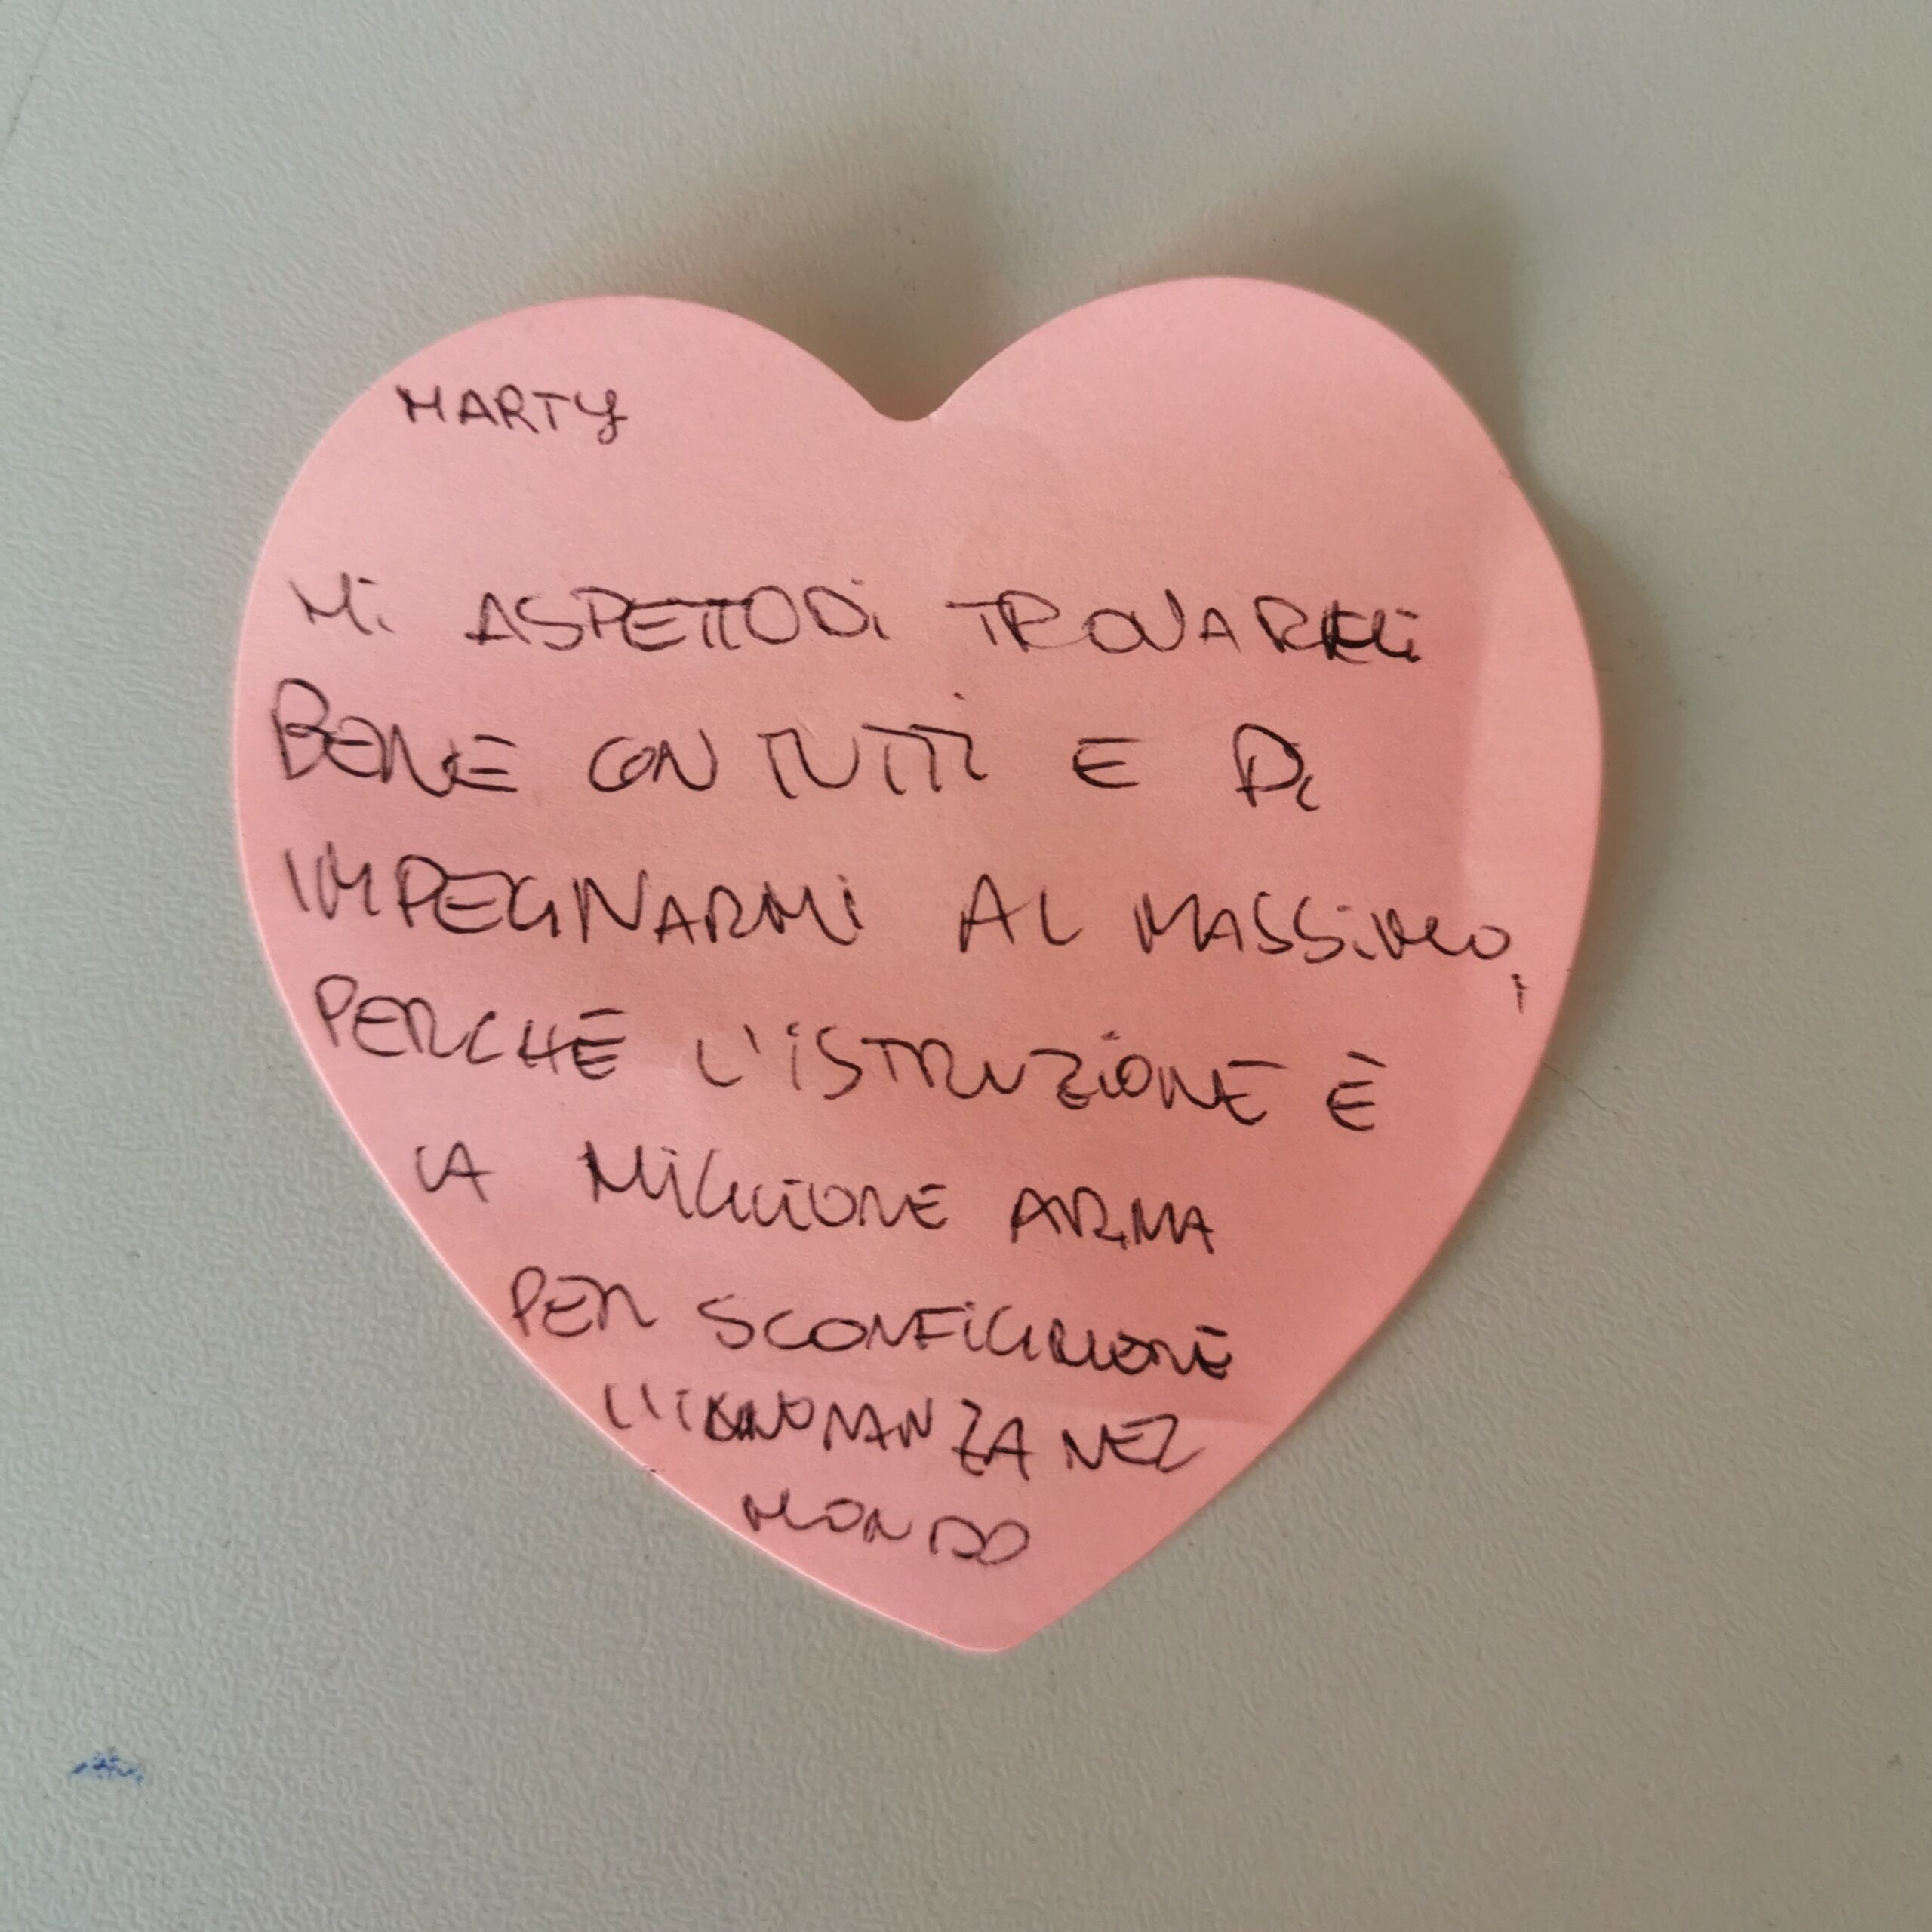 MARTY
Mi ASPETTO Di TROVARMi
BENE CON TUTTI E Di
IMPEGNARMi AL MASSiMO,
PERCHÉ L'iSTRUZiONE È
LA MiGLiORE ARMA
PER SCONFiGGERE
L'iGNORANZA NEL
MONDO